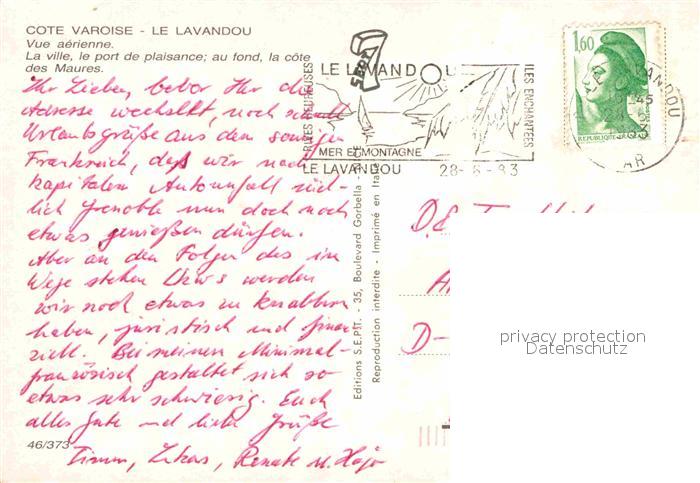 COTE VAROISE - LE LAVANDOU
Vue aérienne.
La ville, le port de plaisance; au fond, la côte
des Maures.
Ihr Lieben, bevor Ihr die
Adresse wechselt, noch schnell
Urlaubsgrüße aus dem sonnigen
Frankreich, daß wir nach
kapitalem Autounfall süd-
lich Grenoble nun doch noch
etwas genießen dürfen.
Aber an den Folgen des im
Wege stehen LKWs werden
wir noch etwas zu knabbern
haben, juristisch und finan-
ziell. Bei meinem Minimal-
französisch gestaltet sich so
etwas sehr schwierig. Euch
alles Gute und liebe Grüße
Timm, Renate u. Hajo
46/373
Editions S.E.P.T. - 35, Boulevard Gorbella
Reproduction interdite - Imprimé en Italie
7
SEPT
LE LAVANDOU
ILES ENCHANTÉES
MER ET MONTAGNE
LE LAVANDOU
28-6-83
1,60
LAVANDOU
VAR
D-
privacy protection
Datenschutz